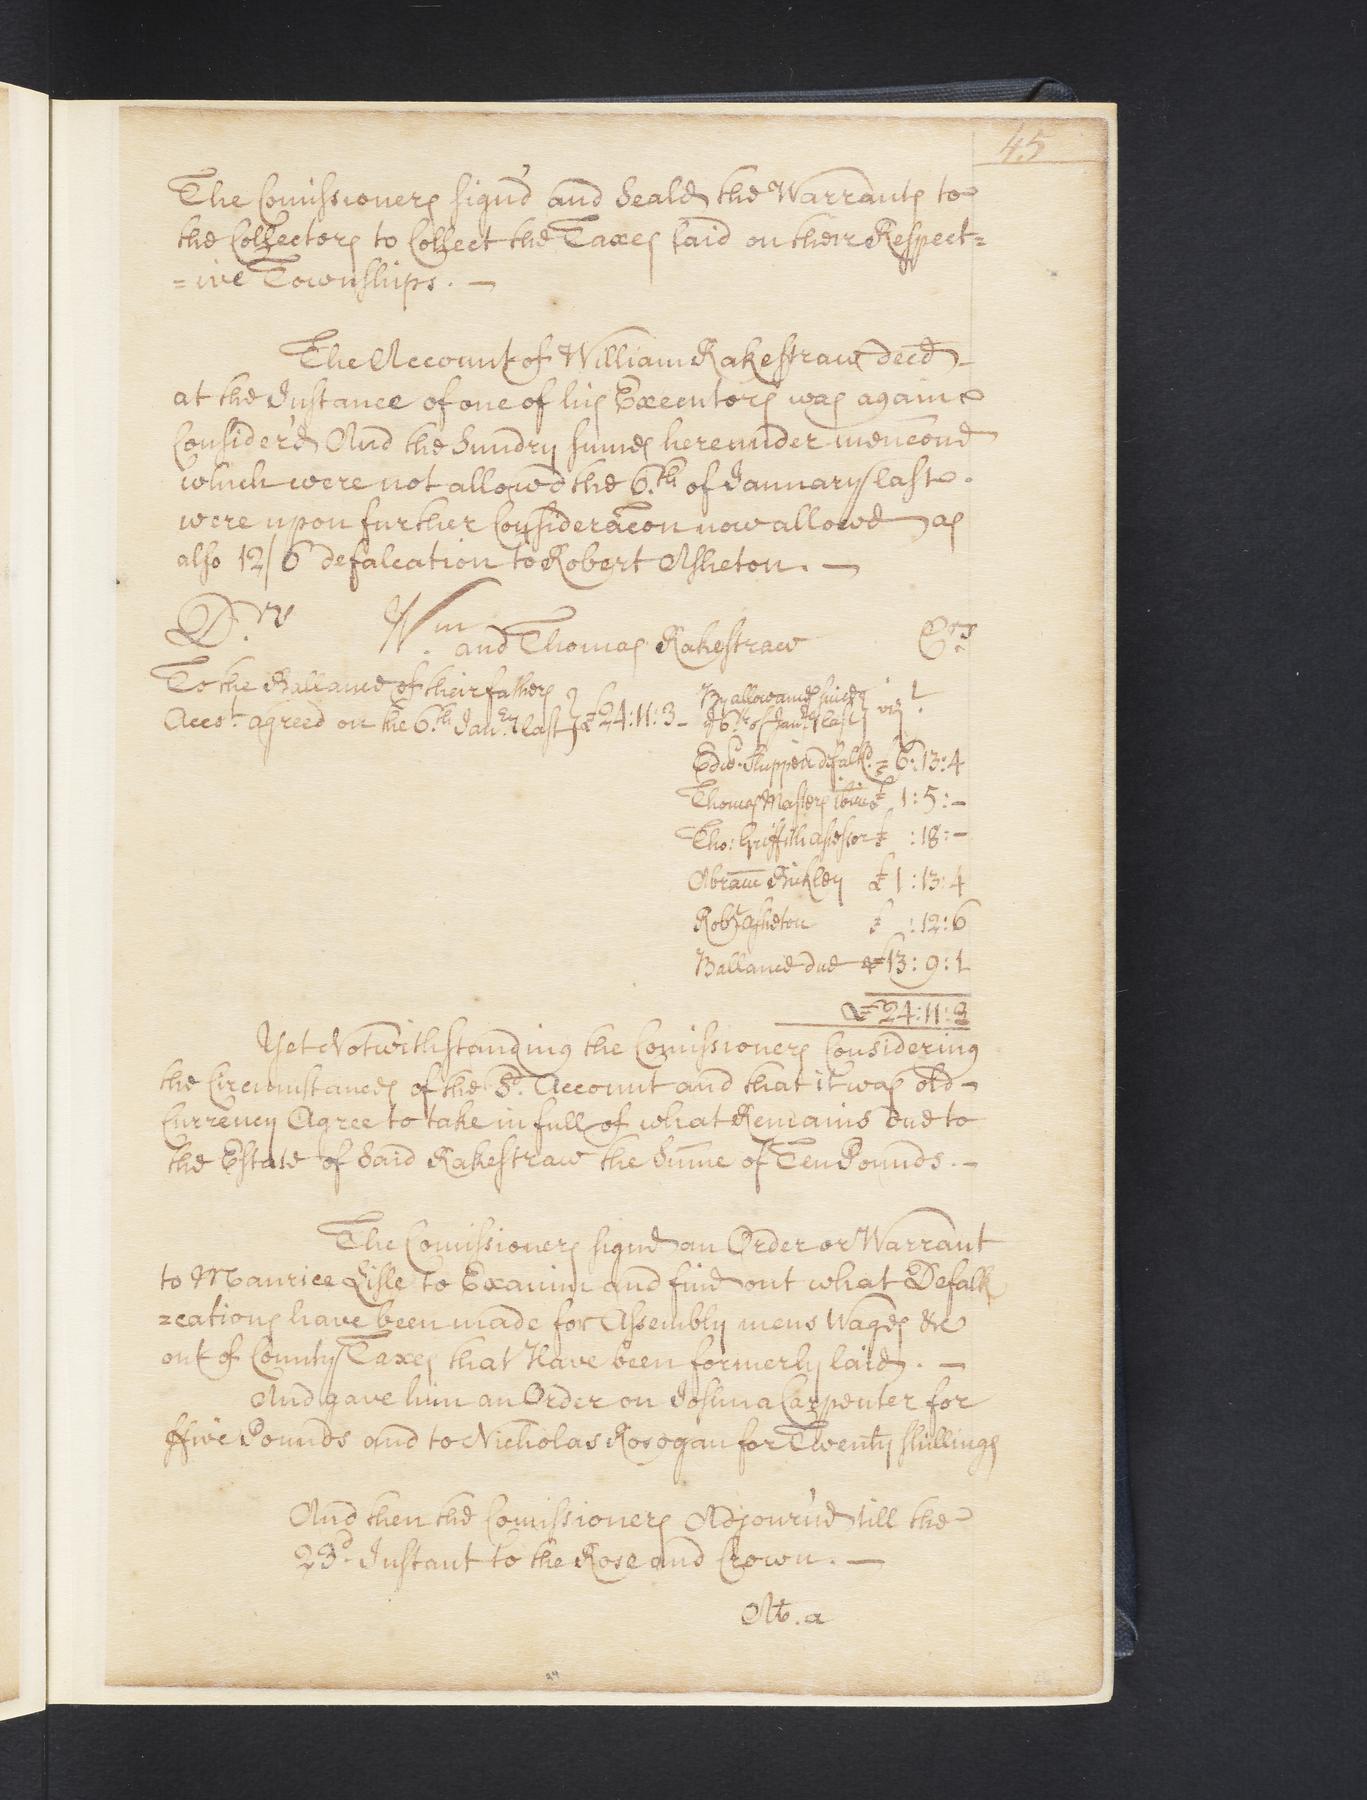 45
The Comissioners sign'd and Seald the Warrants to
the Collectors to Collect the Taxes laid on their Respect=
=ive Townships. —
The Account of William Rakestraw decd
at the Instance of one of his Executors was again
Consider'd And the Sundry sumes hereunder mencond
which were not allowd the 6.th of January last.
were upon further Consideracon now allowd as
also 12/6 defalcation to Robert Asheton. —
D.rs Wm. and Thomas Rakestraw Crs
To the Ballance of their fathers
Acco.t agreed on the 6.th Jan.ry last } £24:11:3 –
By allowance since
ye 6.th of Jan.ry last } viz
Edwd. Shippen defalkd. £6:13:4
Thomas Masters £ 1:5:–
Tho: Griffith assessor £ :18:–
Abram Bickley £ 1:13:4
Robt Asheton £ :12:6
Ballance due £13:9:1
£24:11:3
Yet Notwithstanding the Comissioners Considering
the Circumstances of the Sd. Account and that it was old
Currency Agree to take in full of what Remains due to
the Estate of Said Rakestraw the Sume of Ten Pounds. –
The Comissioners signd an Order or Warrant
to Maurice Lisle to Examin and find out what Defalk
=cations have been made for Assembly mens Wages &c
out of County Taxes that Have been formerly laid. —
And gave him an Order on Joshua Carpenter for
ffive Pounds and to Nicholas Rosogan for Twenty shillings
And then the Comissioners Adjourn'd till the
23d. Instant to the Rose and Crown. —
At. a